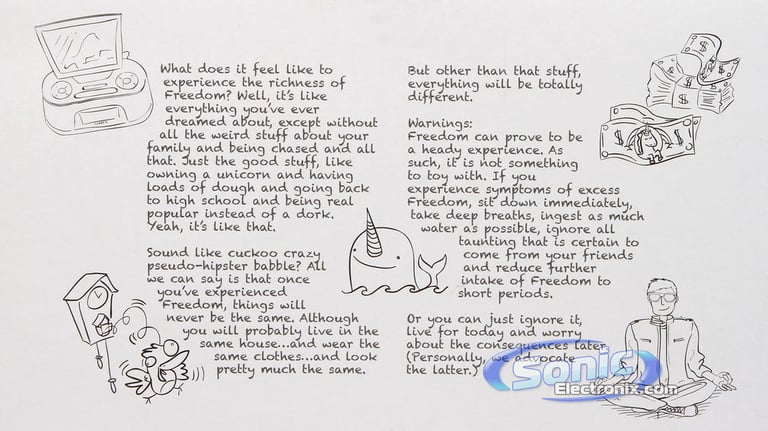 What does it feel like to
experience the richness of
Freedom? Well, it's like
everything you've ever
dreamed about, except without
all the weird stuff about your
family and being chased and all
that. Just the good stuff, like
owning a unicorn and having
loads of dough and going back
to high school and being real
popular instead of a dork.
Yeah, it's like that.
Sound like cuckoo crazy
pseudo-hipster babble? All
we can say is that once
you've experienced
Freedom, things will
never be the same. Although
you will probably live in the
same house...and wear the
same clothes...and look
pretty much the same.
But other than that stuff,
everything will be totally
different.
Warnings:
Freedom can prove to be
a heady experience. As
such, it is not something
to toy with. If you
experience symptoms of excess
Freedom, sit down immediately,
take deep breaths, ingest as much
water as possible, ignore all
taunting that is certain to
come from your friends
and reduce further
intake of Freedom to
short periods.
Or you can just ignore it,
live for today and worry
about the consequences later.
(Personally, we advocate
the latter.)
Sonic
Electronix.com